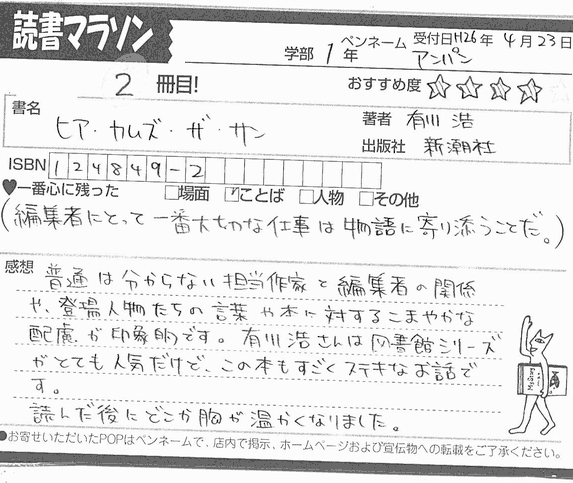 読書マラソン
学部 1 年 ペンネーム アンパン 受付日H26年 4月23日
2 冊目!
おすすめ度 ☆☆☆☆
書名 ヒア・カムズ・ザ・サン
著者 有川 浩
出版社 新潮社
ISBN 124849-2
♥一番心に残った □場面 ☑ことば □人物 □その他
(編集者にとって一番大切な仕事は物語に寄り添うことだ。)
感想 普通は分からない担当作家と編集者の関係
や、登場人物たちの言葉や本に対するこまやかな
配慮が印象的です。有川浩さんは図書館シリーズ
がとても人気だけど、この本もすごくステキなお話で
す。
読んだ後にどこか胸が温かくなりました。
●お寄せいただいたPOPはペンネームで、店内で掲示、ホームページおよび宣伝物への転載をご了承ください。